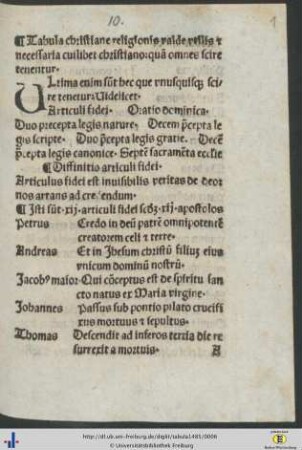 10.
1
¶ Tabula christiane religionis valde vtilis ⁊
necessaria cuilibet christiano: quā omnes scire
tenentur.
Vltima enim sūt hec que vnusquisqȝ sci
re tenetur. Videlicet.
Articuli fidei. Oratio dominica.
Duo precepta legis nature. Decem p̄cepta le
gis scripte. Duo p̄cepta legis gratie. Decē
p̄cepta legis canonice. Septē sacramēta ecclīe
¶ Diffinitio articuli fidei.
Articulus fidei est inuisibilis veritas de deo: r
nos artans ad credendum.
¶ Isti sūt .xij. articuli fidei scd̄ȝ .xij. apostolos
Petrus Credo in deū patrē omnipotentē
creatorem celi ⁊ terre.
Andreas Et in Jhesum christū filiuȝ eius
vnicum dominū nostrū.
Jacobꝰ maior. Qui cōceptus est de spiritu san
cto natus ex Maria virgine.
Johannes Passus sub pontio pilato crucifi
xus mortuus ⁊ sepultus.
Thomas Descendit ad inferos tertia die re
surrexit a mortuis.
A
http://dl.ub.uni-freiburg.de/diglit/tabula1485/0006
© Universitätsbibliothek Freiburg